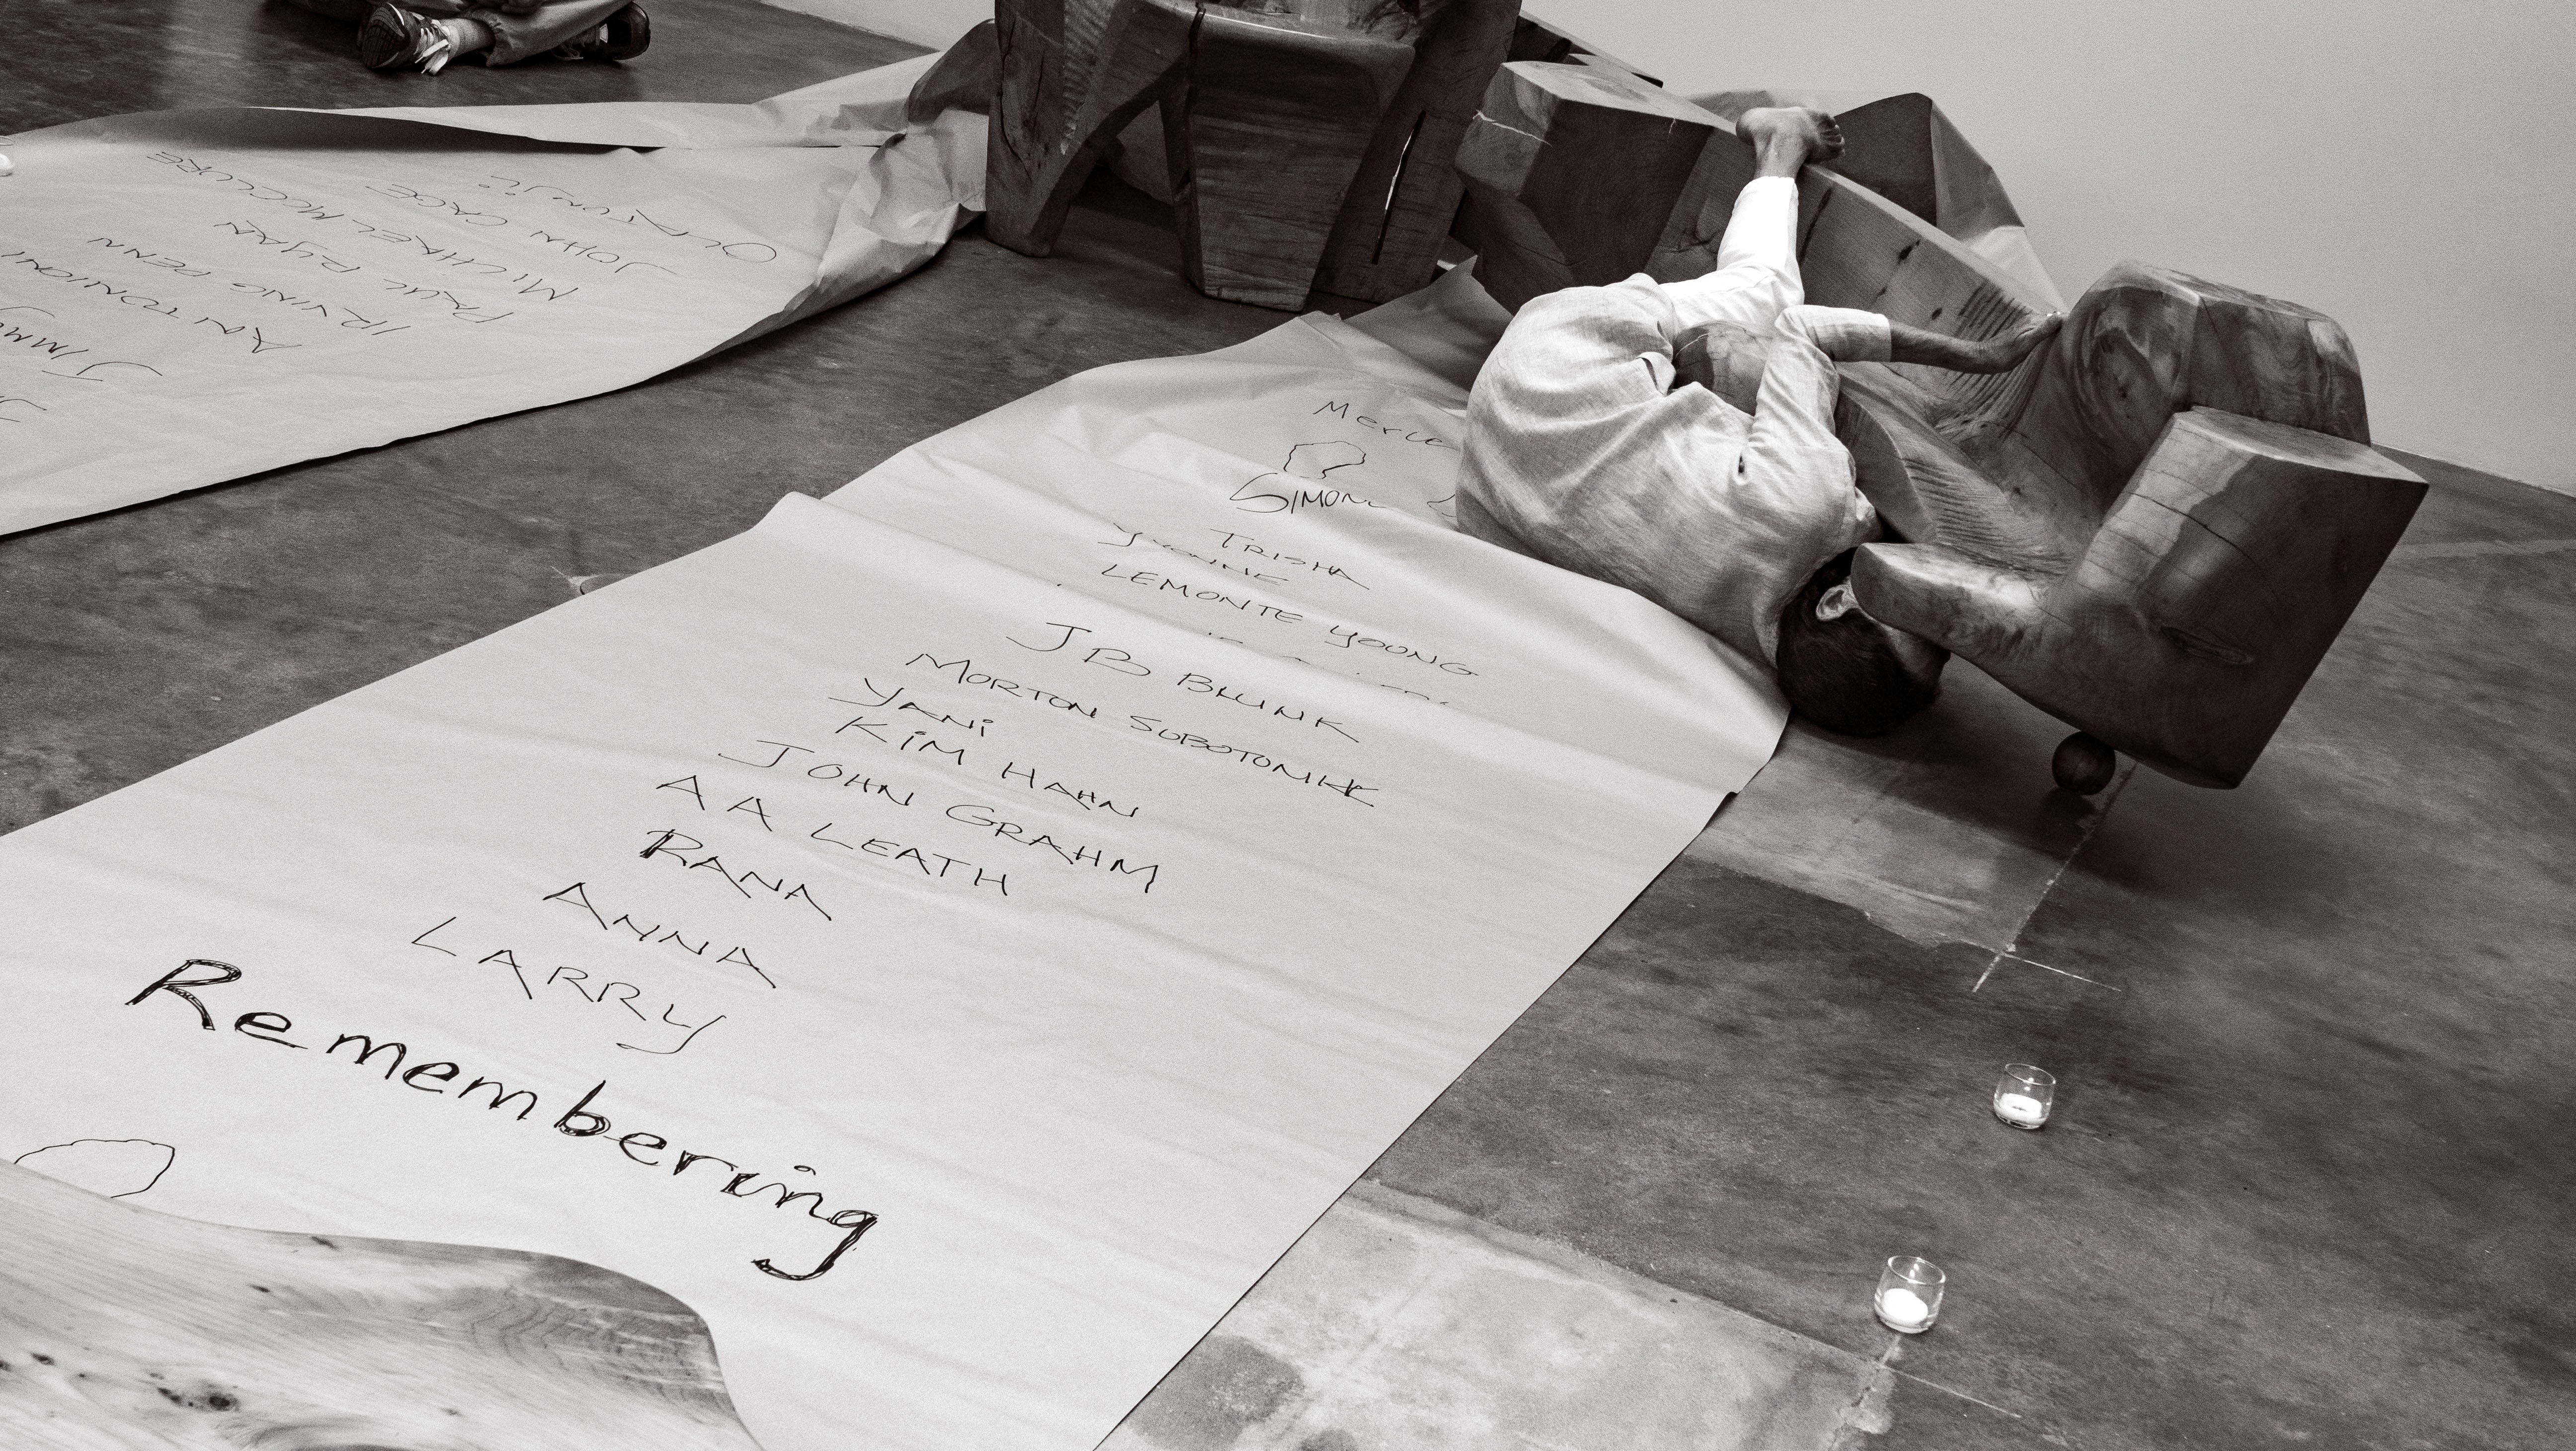 OLATUNJi
JOHN CAGE
MICHAEL MCCLURE
PAUL RYAN
IRVING PENN
ANTONIONI
Merce
SIMON
TRISHA
YVONNE
LEMONTE YOUNG
JB BLUNK
MORTON SUBOTONIK
YANi
KiM HAHN
JOHN GRAHM
A A LEATH
RANA
ANNA
LARRY
Remembering